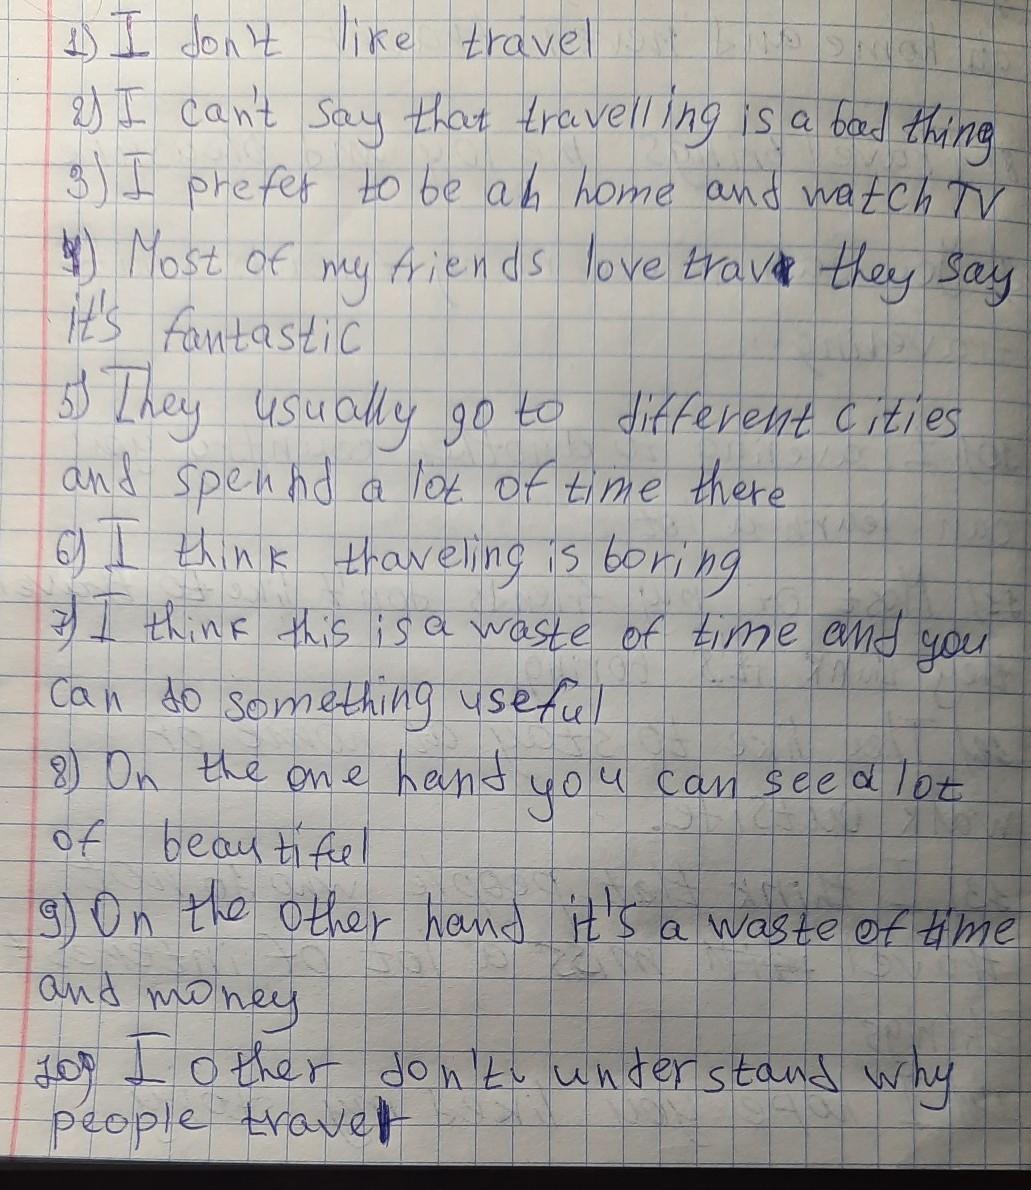 1) I don't like travel
2) I can't say that travelling is a bad thing
3) I prefer to be ah home and watch TV
4) Most of my friends love trav they say
it's fantastic
5) They usually go to different cities
and spenhd a lot of time there
6) I think traveling is boring
7) I think this is a waste of time and you
can do something useful
8) On the one hand you can see a lot
of beautiful
9) On the other hand it's a waste of time
and money
10) I other don't understand why
people travel